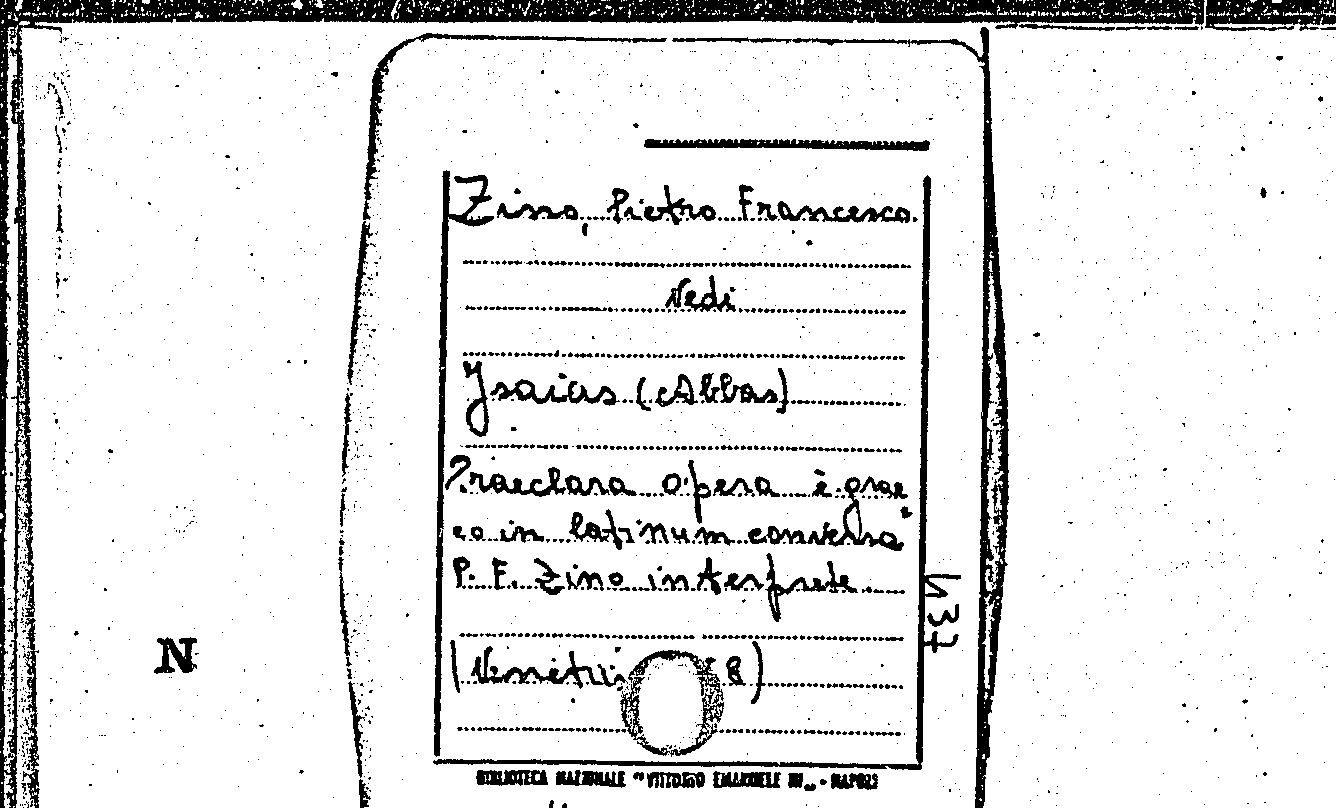 Zino, Pietro Francesco.
Vedi
Ysaias (Abbas)
Praeclara opera è grae
co in latinum conversa
P. F. Zino interprete.
(Venetiis 8)
h 37
N
BIBLIOTECA NAZIONALE "VITTORIO EMANUELE III" - NAPOLI